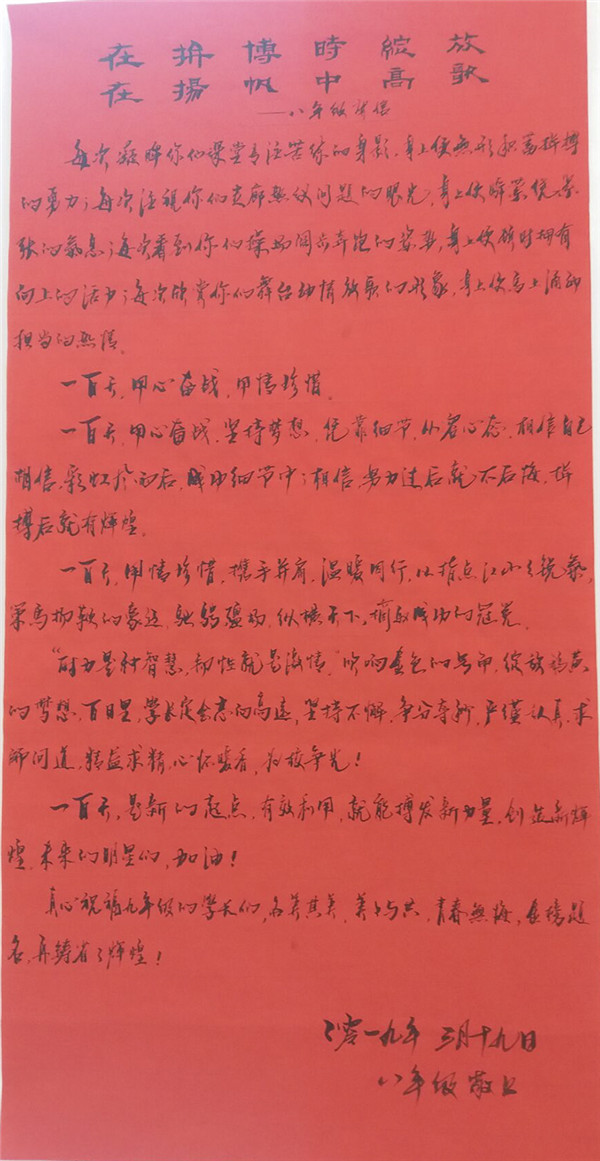 在拚博時綻放
在揚帆中高歌
——八年级
每次凝眸你们课堂专注苦练的身影,身上便無形积蓄拚搏
的勇力;每次注視你们走廊熱议问题的眼光,身上便瞬間緊
张的氣息;每次看到你们操场阔步奔跑的姿势,身上便顿时拥有
向上的活力;每次欣赏你们舞台动情放歌的形象,身上便马上涌动
担当的熱情。
一百天,用心奋战,用情珍惜。
一百天,用心奋战,坚持梦想,凭靠细节,从容心态,相信自己
相信,彩虹於雨后,成功细节中;相信,努力过后就不后悔,拼
搏后就有輝煌。
一百天,用情珍惜,携手并肩,温暖同行,以指点江山之锐氣,
策马扬鞭的豪迈,馳騁疆场,纵橫天下,摘取成功的冠冕。
“耐力是种智慧,韧性就是激情”吹响金色的号角,綻放
的梦想,百日里,学长定会志向高遠,坚持不懈,争分夺秒,严谨认真,求
师问道,精益求精,心怀馨香,为校争光!
一百天,是新的起点,有效利用,就能搏发新力量,创造新輝
煌,未来的明星们,加油!
真心祝福九年级的学长们,各美其美,美美与共,青春無悔,金榜题
名,再鑄省三輝煌!
二零一九年三月十九日
八年级敬上